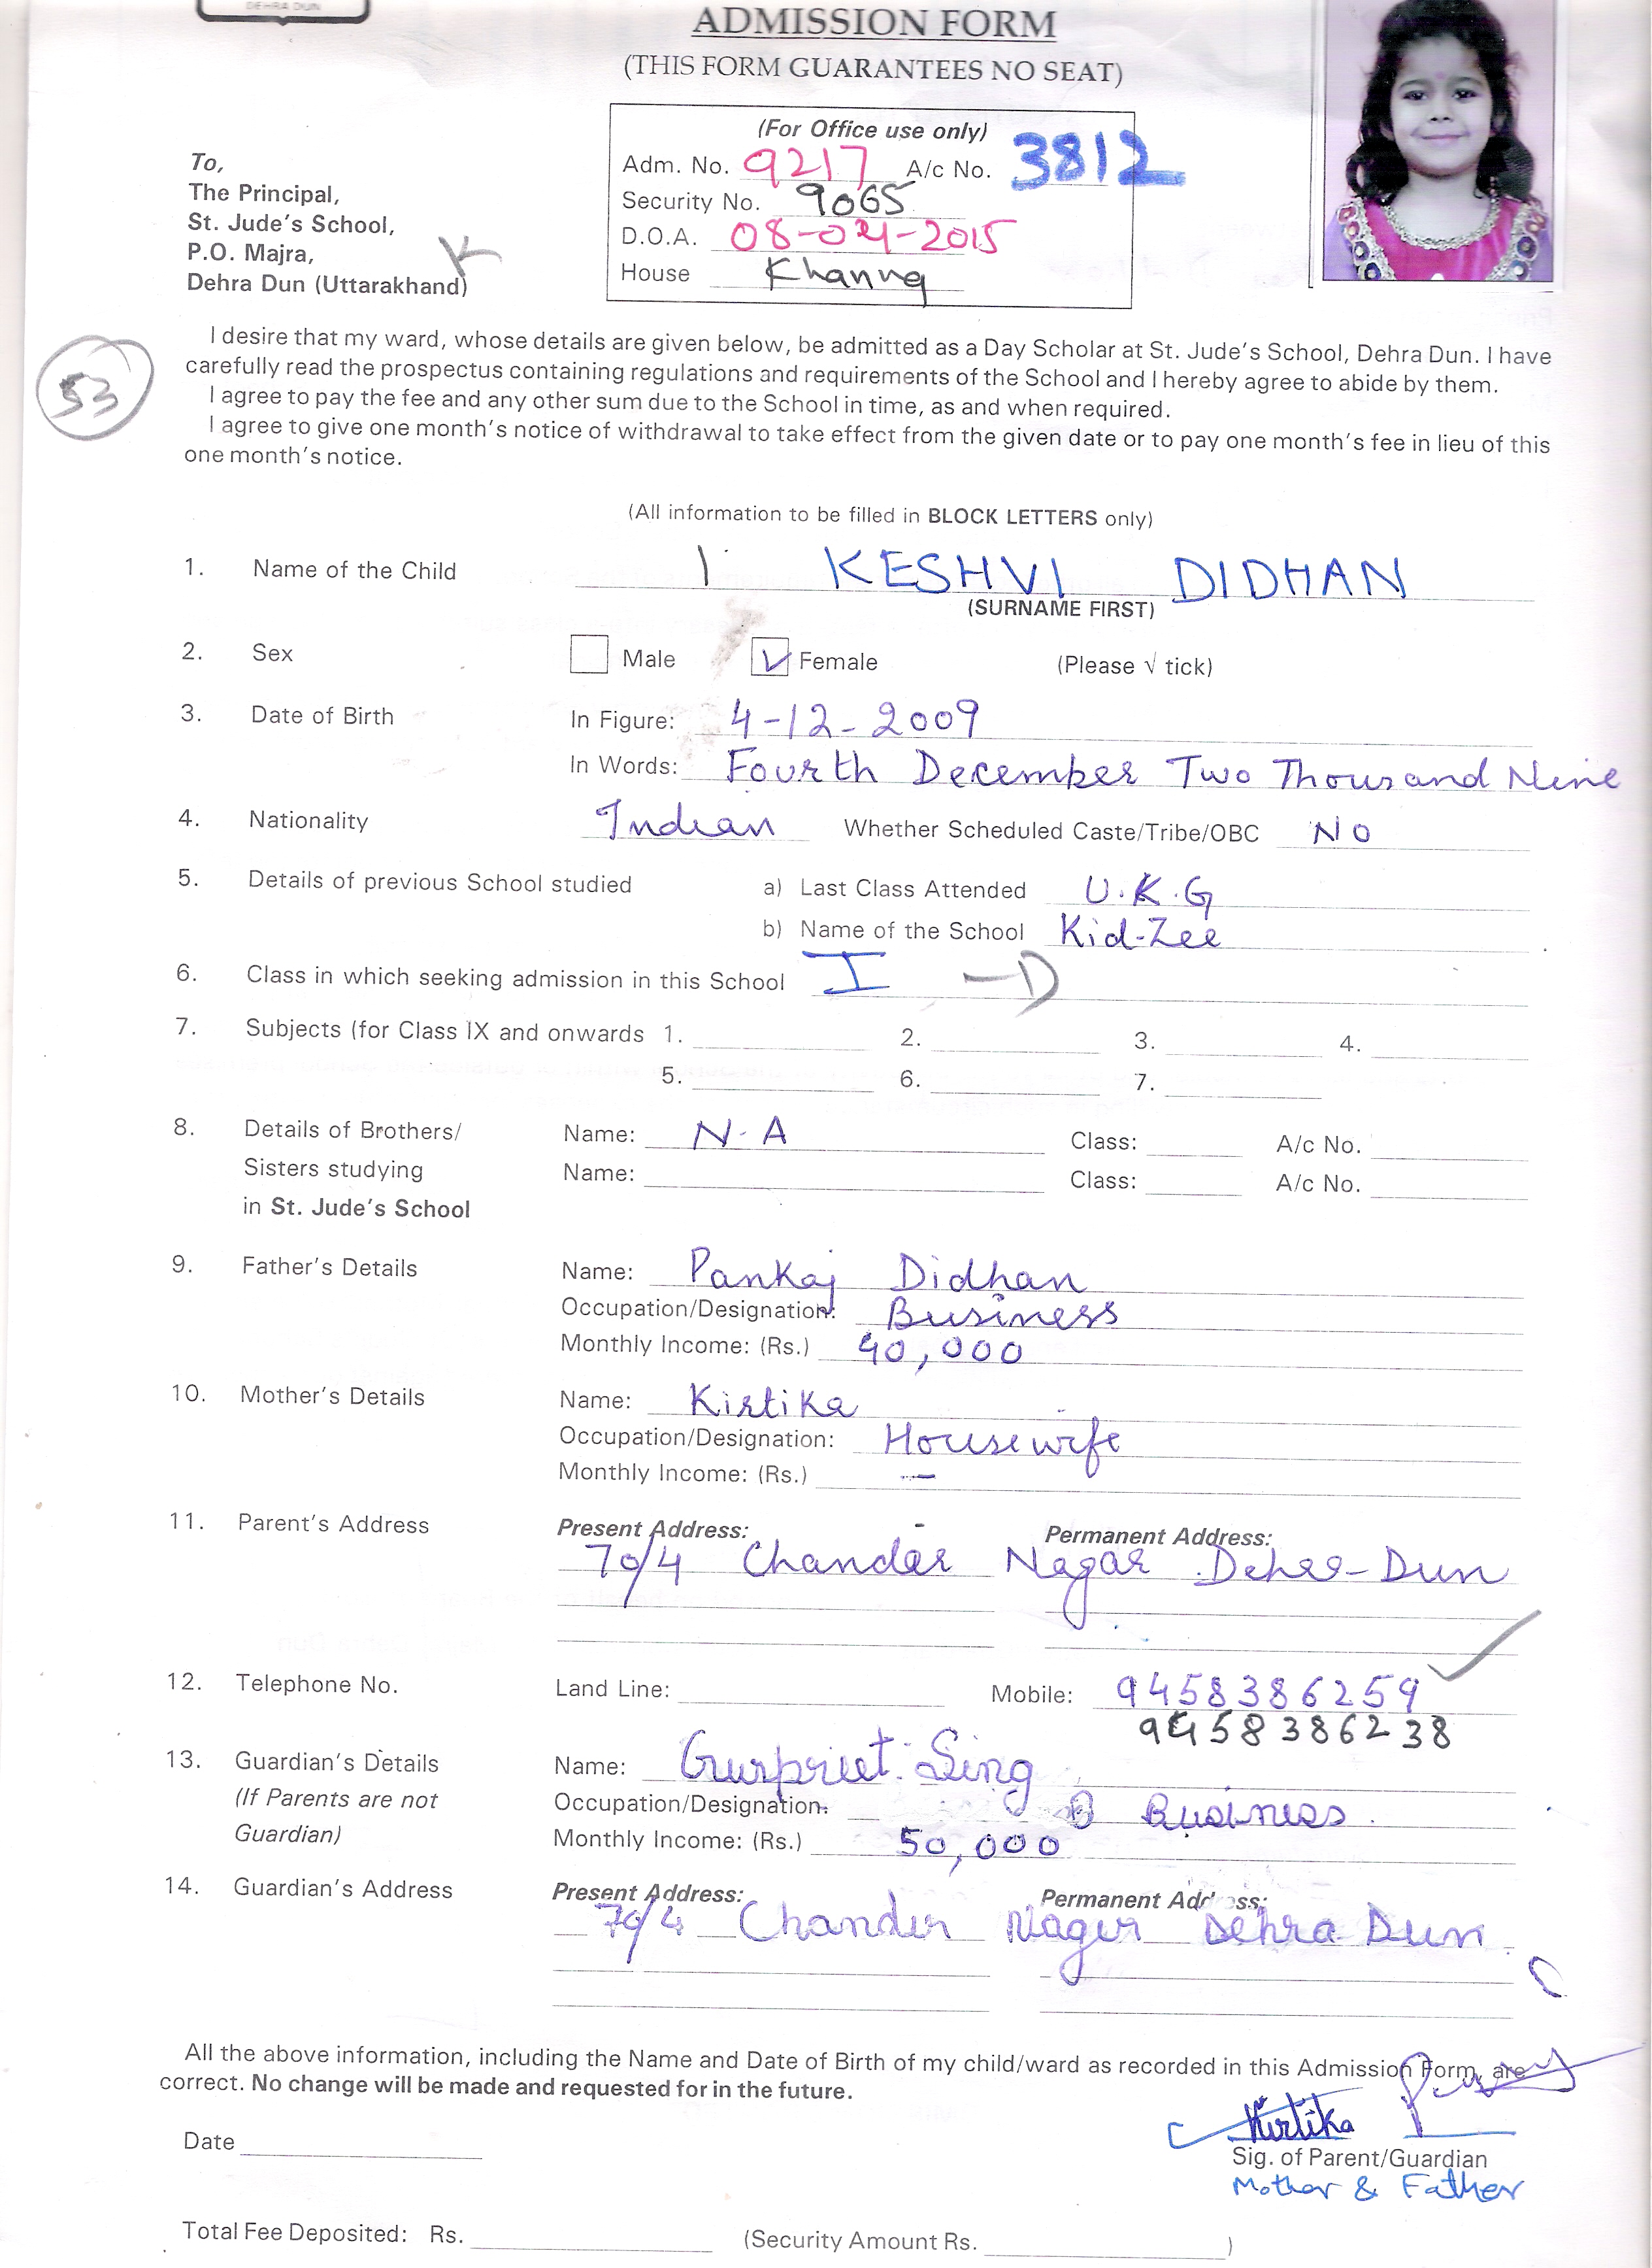 DEHRA DUN
ADMISSION FORM
(THIS FORM GUARANTEES NO SEAT)
(For Office use only)
Adm. No. 9217 A/c No. 3812
Security No. 9065
D.O.A. 08-04-2015
House Khanna
To,
The Principal,
St. Jude's School,
P.O. Majra,
Dehra Dun (Uttarakhand)
K
53
I desire that my ward, whose details are given below, be admitted as a Day Scholar at St. Jude's School, Dehra Dun. I have
carefully read the prospectus containing regulations and requirements of the School and I hereby agree to abide by them.
I agree to pay the fee and any other sum due to the School in time, as and when required.
I agree to give one month's notice of withdrawal to take effect from the given date or to pay one month's fee in lieu of this
one month's notice.
(All information to be filled in BLOCK LETTERS only)
1. Name of the Child KESHVI DIDHAN
(SURNAME FIRST)
2. Sex Male Female (Please √ tick)
3. Date of Birth In Figure: 4-12-2009
In Words: Fourth December Two Thousand Nine
4. Nationality Indian Whether Scheduled Caste/Tribe/OBC No
5. Details of previous School studied a) Last Class Attended U.K.G
b) Name of the School Kid-Zee
6. Class in which seeking admission in this School I - D
7. Subjects (for Class IX and onwards 1. 2. 3. 4.
5. 6. 7.
8. Details of Brothers/ Name: N-A Class: A/c No.
Sisters studying Name: Class: A/c No.
in St. Jude's School
9. Father's Details Name: Pankaj Didhan
Occupation/Designation: Business
Monthly Income: (Rs.) 40,000
10. Mother's Details Name: Kirtika
Occupation/Designation: Housewife
Monthly Income: (Rs.) -
11. Parent's Address Present Address: Permanent Address:
70/4 Chander Nagar Dehra-Dun
12. Telephone No. Land Line: Mobile: 9458386259
9458386238
13. Guardian's Details Name: Gurpreet Sing
(If Parents are not Occupation/Designation: Business
Guardian) Monthly Income: (Rs.) 50,000
14. Guardian's Address Present Address: Permanent Address:
70/4 Chander Nager Dehra Dun
All the above information, including the Name and Date of Birth of my child/ward as recorded in this Admission Form, are
correct. No change will be made and requested for in the future.
Kirtika
Date Sig. of Parent/Guardian
Mother & Father
Total Fee Deposited: Rs. (Security Amount Rs. )